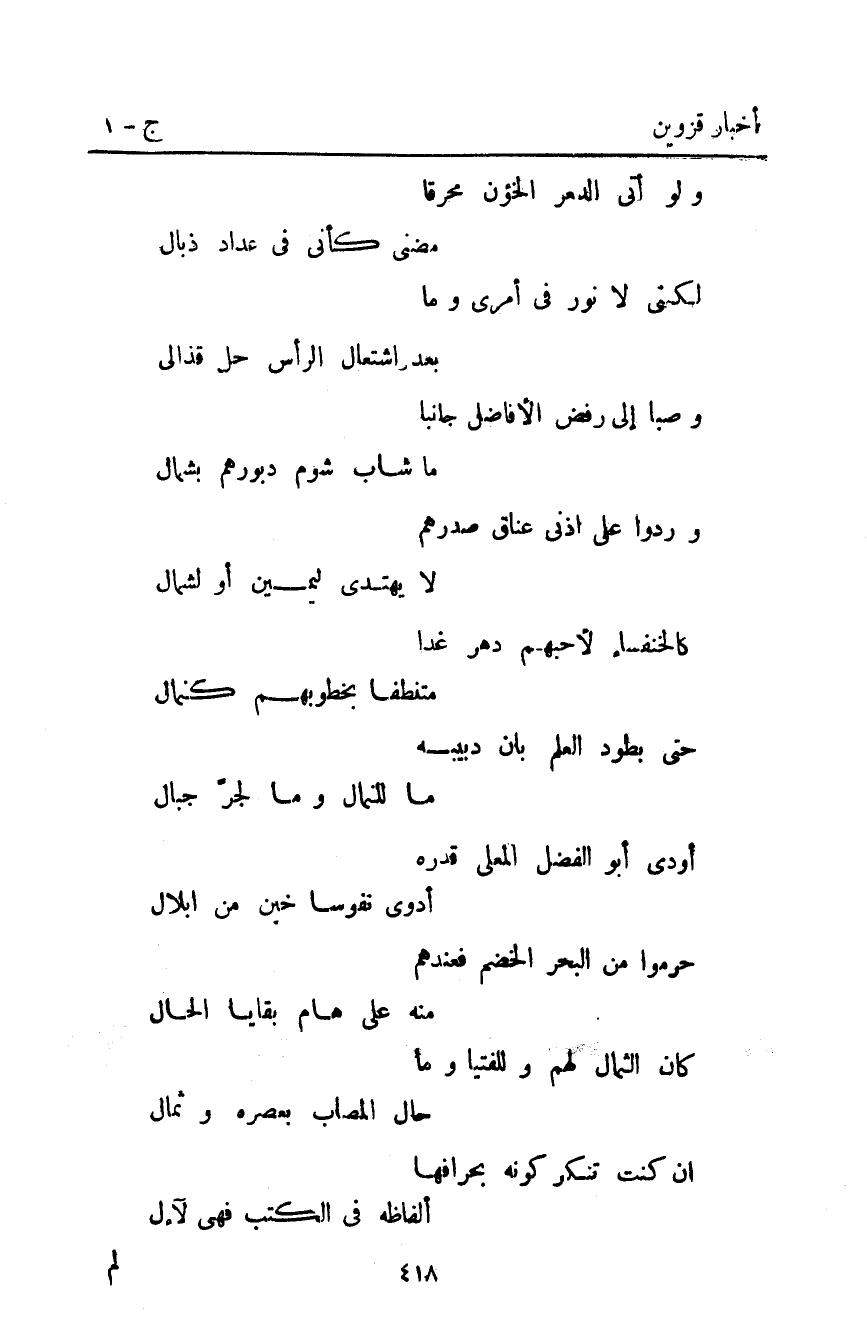 أخبار قزوين ج - ١
و لو أتى الدهر الخؤن محرقا
مضنى كأنى فى عداد ذبال
لكننى لا نور فى أمرى و ما
بعد اشتعال الرأس حل قذالى
و صبا إلى رفض الأفاضل جانبا
ما شاب شوم دبورهم بشمال
و ردوا على اذنى عناق صدرهم
لا يهتدى ليمين أو لشمال
كالخنفساء لأحبهم دهر غدا
متنطفا بخطوبهم كنمال
حتى بطود العلم بان دبيبه
ما للنمال و ما لجرّ جبال
أودى أبو الفضل المعلى قدره
أدوى نفوسا خبن من ابلال
حرموا من البحر الخضم فعندهم
منه على هام بقايا الحال
كان الثمال لهم و للفتيا و مأ
حال المصاب بعصره و ثمال
ان كنت تنكر كونه بحرافها
ألفاظه فى الكتب فهى لآءل
٤١٨
لم